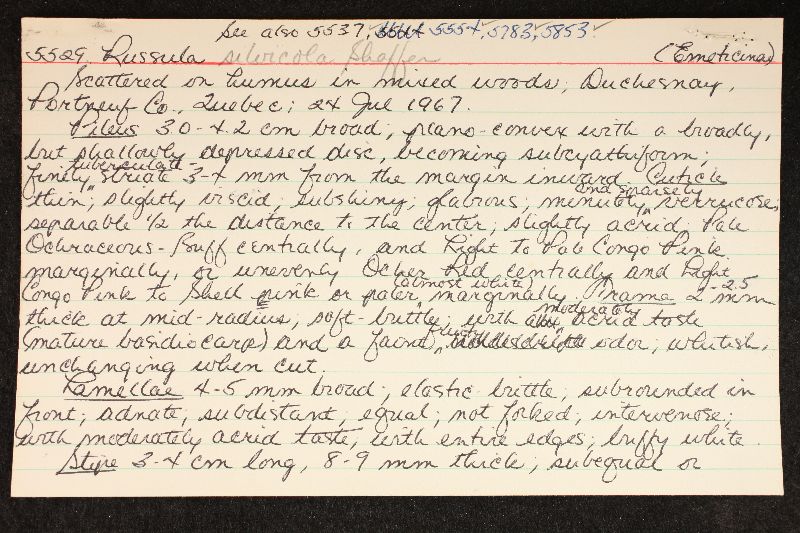 See also 5537, 5554, 5783, 5853
5529. Russula silvicola Shaffer (Emeticinae)
Scattered on humus in mixed woods; Duchesnay,
Portneuf Co., Quebec; 24 Jul 1967.
Pileus 3.0-4.2 cm broad; plano-convex with a broadly,
but shallowly depressed disc, becoming subcyathiform;
finely tuberculate-striate 3-4 mm from the margin inward. Cuticle
thin; slightly viscid, subshiny; glabrous; minutely and sparsely verrucose;
separable ½ the distance to the center; slightly acrid; Pale
Ochraceous-Buff centrally, and Light to Pale Congo Pink
marginally, or unevenly Ocher Red centrally and Light
Congo Pink to Shell Pink or paler (almost white) marginally. Trama 2-2.5 mm
thick at mid-radius; soft-brittle; with moderately acrid taste
(mature basidiocarp) and a faint, fruity odor; whitish,
unchanging when cut.
Lamellae 4-5 mm broad; elastic-brittle; subrounded in
front; adnate; subdistant; equal; not forked; intervenose;
with moderately acrid taste; with entire edges; buffy white.
Stipe 3-4 cm long, 8-9 mm thick; subequal or